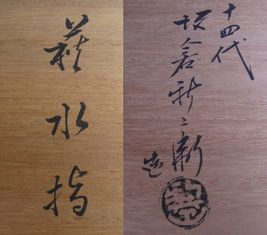 萩水指
十四代
坂倉新兵衛
造